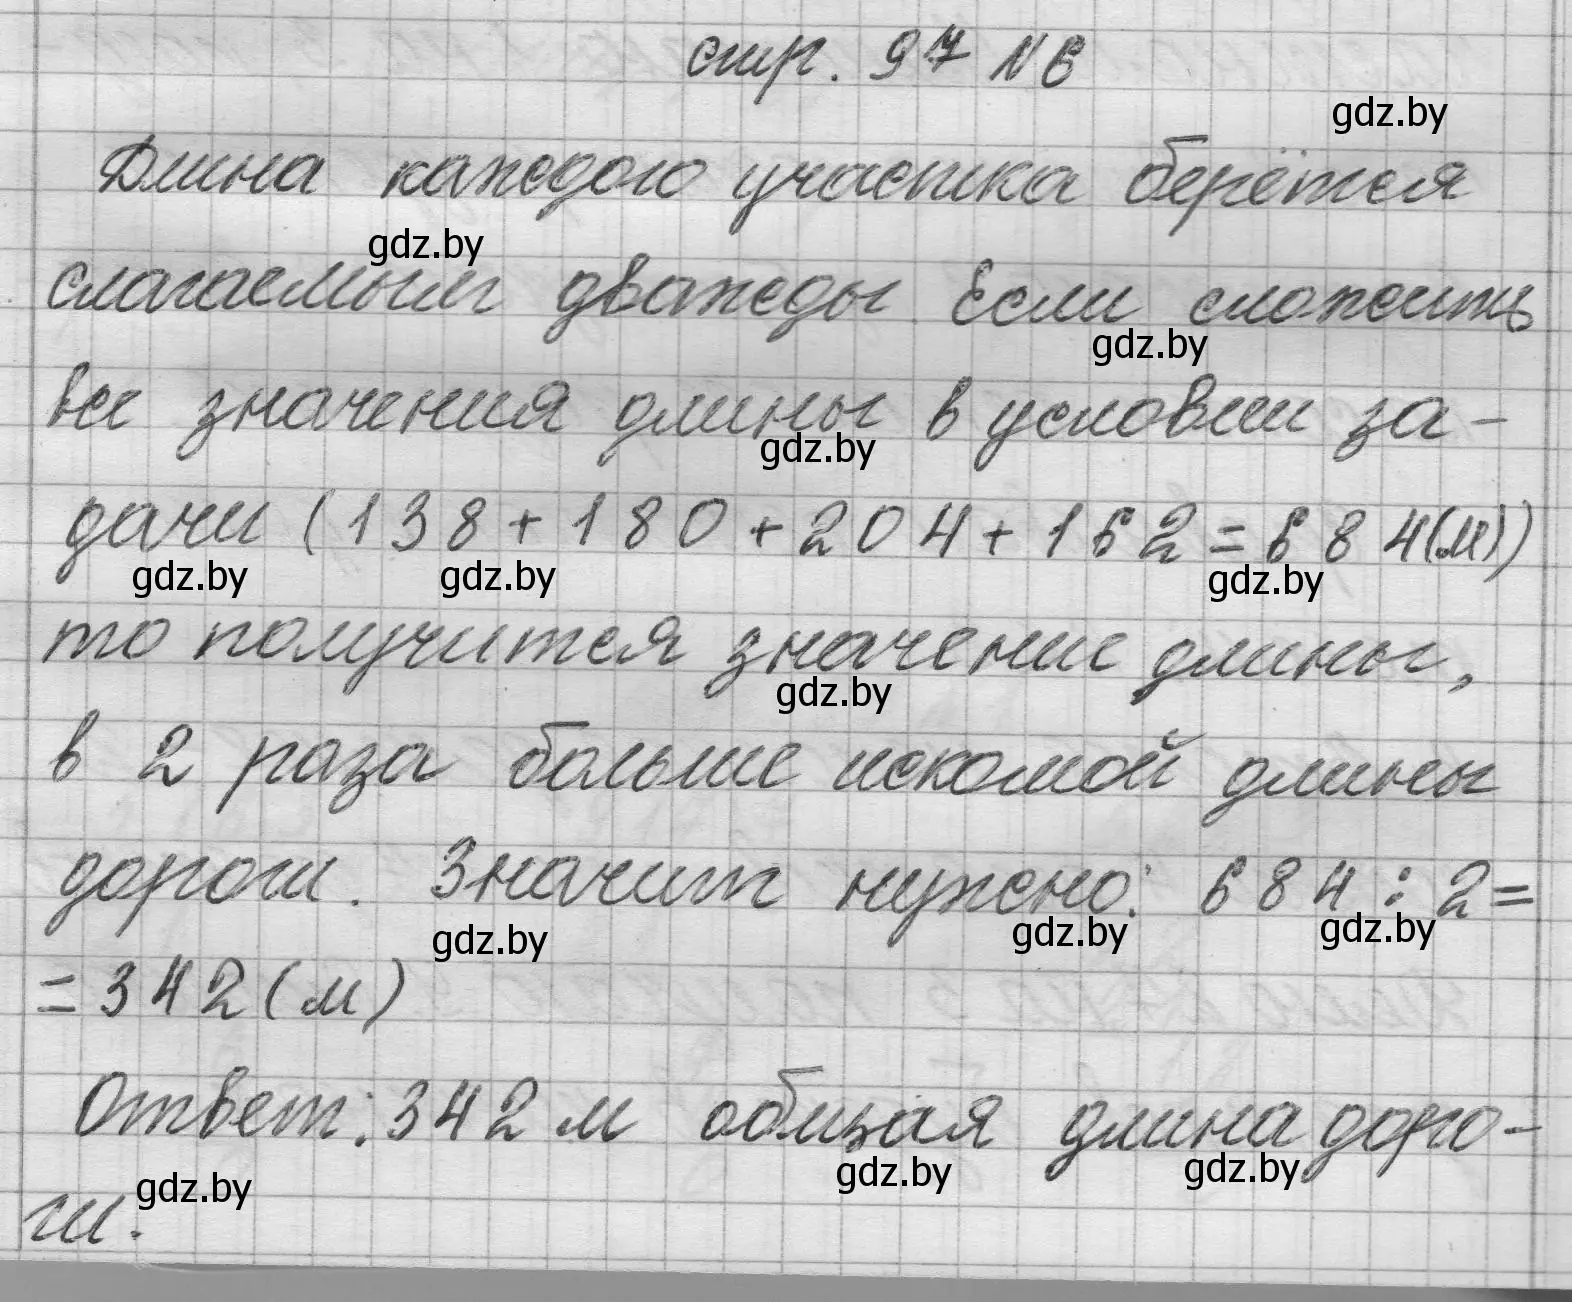 стр. 97 №6
gdz.by
Длина каждого участка берётся
gdz.by
слагаемым дважды. Если сложить
gdz.by
все значения длины в условии за-
gdz.by
дачи (138+180+204+162=684(м))
gdz.by gdz.by gdz.by
то получится значение длины,
gdz.by
в 2 раза больше искомой длины
дороги. Значит нужно: 684:2=
gdz.by gdz.by gdz.by
=342(м)
Ответ: 342 м общая длина доро-
gdz.by gdz.by gdz.by
ги.